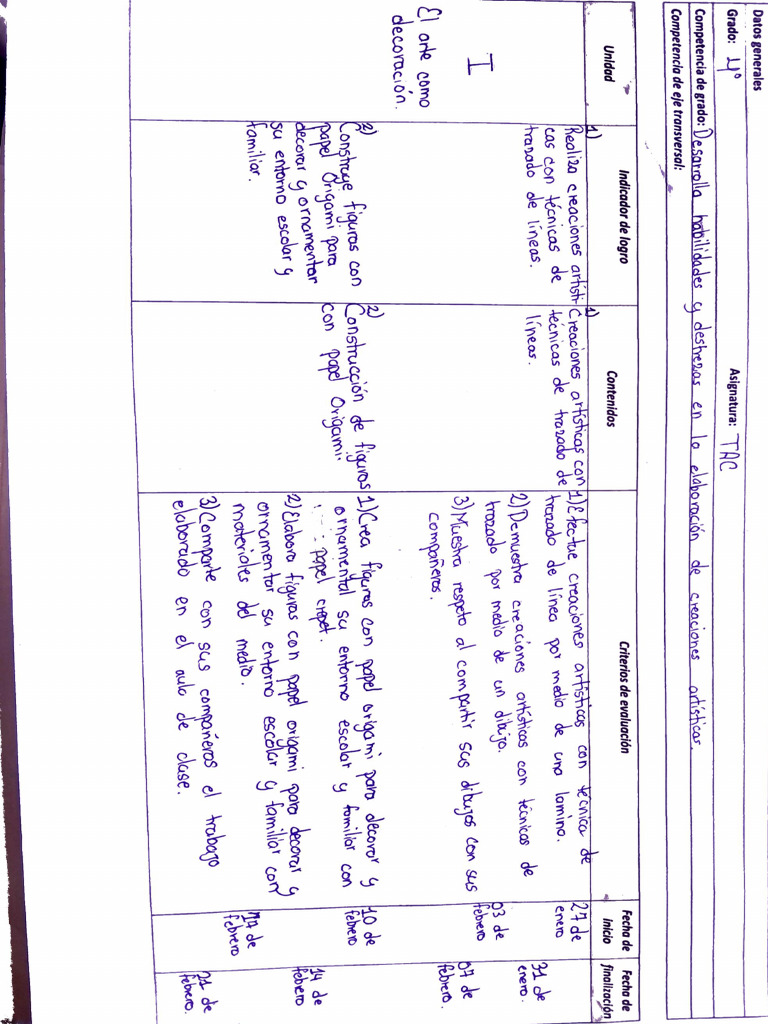 Datos generales
Grado: 4° Asignatura: TAC
Competencia de grado: Desarrolla habilidades y destrezas en la elaboración de creaciones artísticas.
Competencia de eje transversal:
Unidad
Indicador de logro
Contenidos
Criterios de evaluación
Fecha de
inicio
Fecha de
finalización
I
El arte como
decoración.
1)
Realiza creaciones artísti-
cas con técnicas de
trazado de líneas.
2)
Construye figuras con
papel Origami para
decorar y ornamentar
su entorno escolar y
familiar.
1)
Creaciones artísticas con
técnicas de trazado de
líneas.
2)
Construcción de figuras
con papel Origami.
1) Efectue creaciones artísticas con técnica de
trazado de línea por medio de una lamina.
2) Demuestra creaciones artísticas con técnicas de
trazado por medio de un dibujo.
3) Muestra respeto al compartir sus dibujos con sus
compañeros.
1) Crea figuras con papel origami para decorar y
ornamental su entorno escolar y familiar con
papel crepet.
2) Elabora figuras con papel origami para decorar y
ornamentar su entorno escolar y familiar con
materiales del medio.
3) Comparte con sus compañeros el trabajo
elaborado en el aula de clase.
27 de
enero
03 de
febrero
10 de
febrero
17 de
febrero
31 de
enero.
07 de
febrero.
14 de
febrero
21 de
febrero.